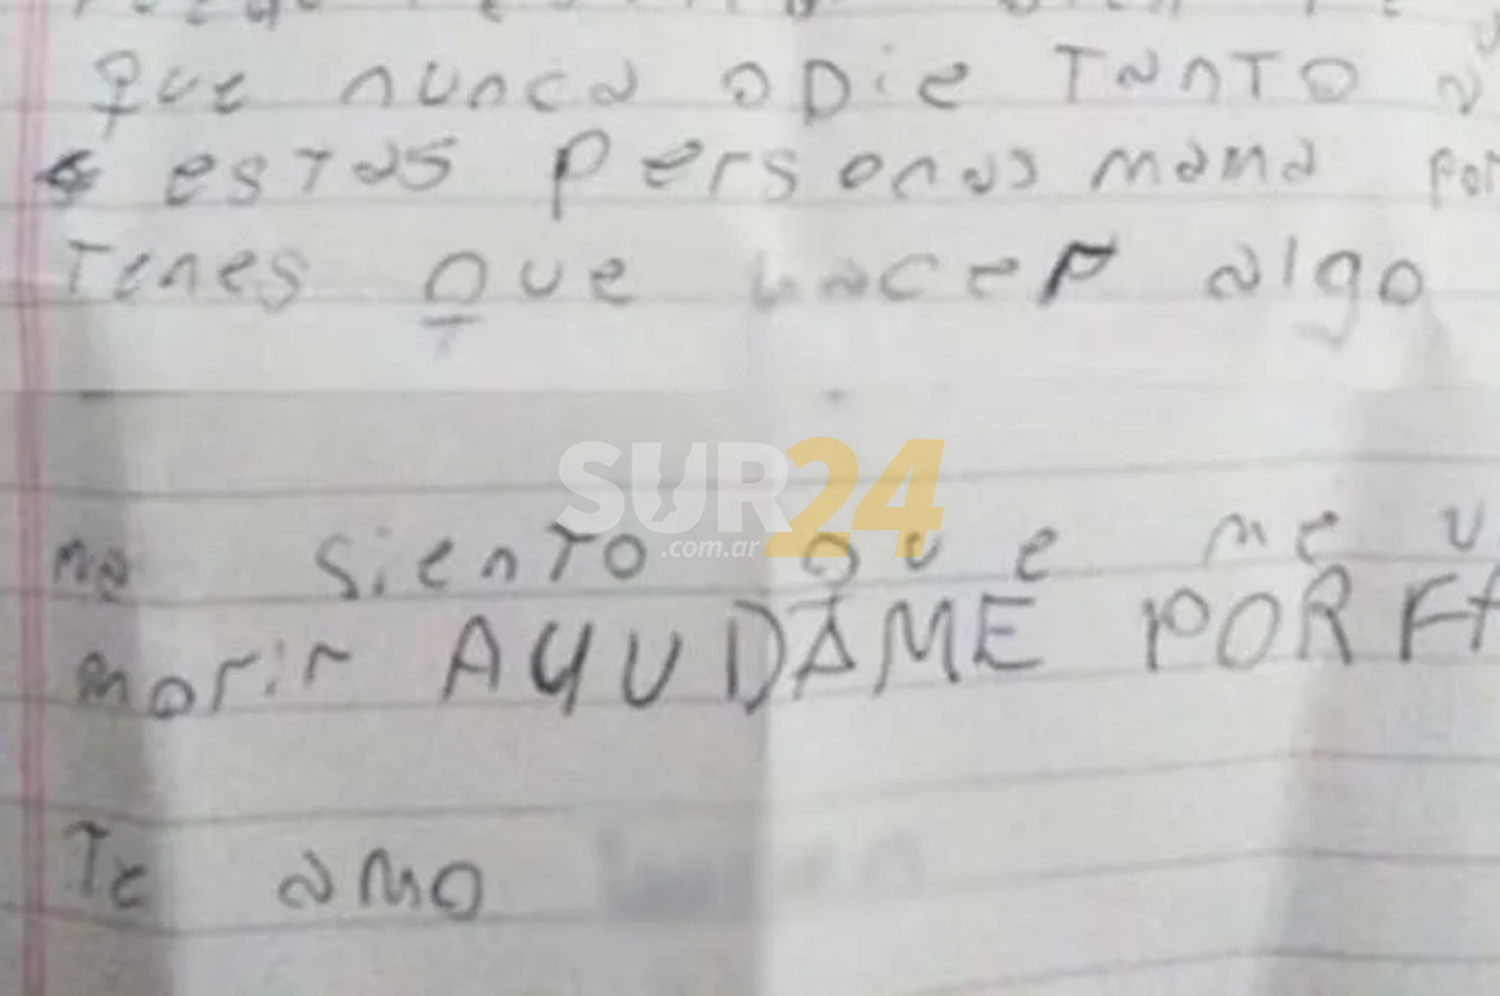 que nunca odie TanTo a
estas personas mama por
Tenes que hacer algo
SUR24
.com.ar
me siento que me v
morir AYUDAME PORFA
Te amo